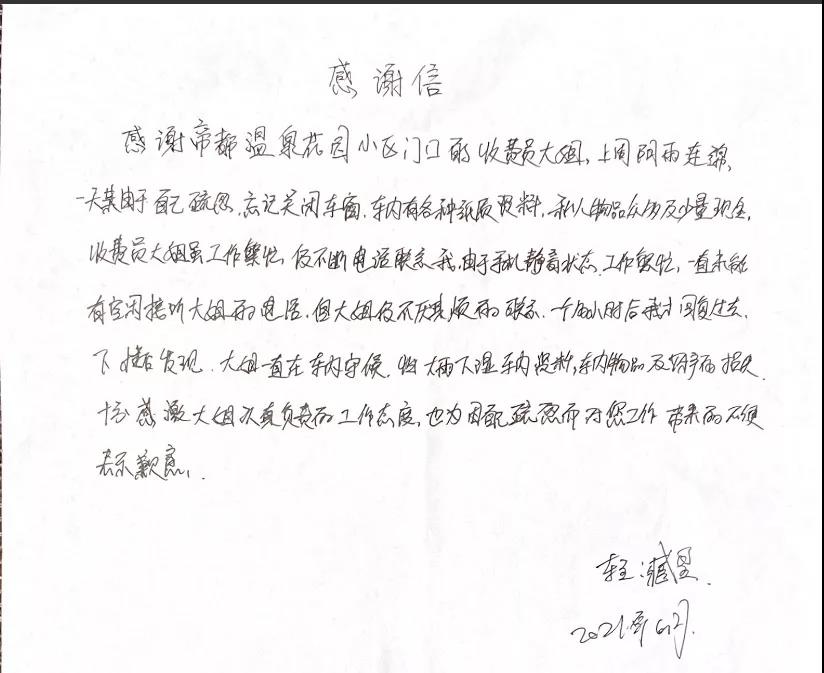 感谢信
感谢帝都温泉花园小区门口的收费员大姐，上周阴雨连绵，
一天某由于自己疏忽，忘记关闭车窗，车内有各种纸质资料，私人物品众多及少量现金，
收费员大姐虽工作繁忙，仍不断电话联系我，由于手机静音状态，工作繁忙，一直未能
有空闲接听大姐的电话，但大姐仍不厌其烦的联系，一个多小时后我才回复过去，
下楼后发现，大姐一直在车内守候，怕大雨下湿车内资料，车内物品及财产的损失
十分感激大姐认真负责的工作态度，也为因自己疏忽而对您工作带来的不便
表示歉意，
车主：臧
2021年6月